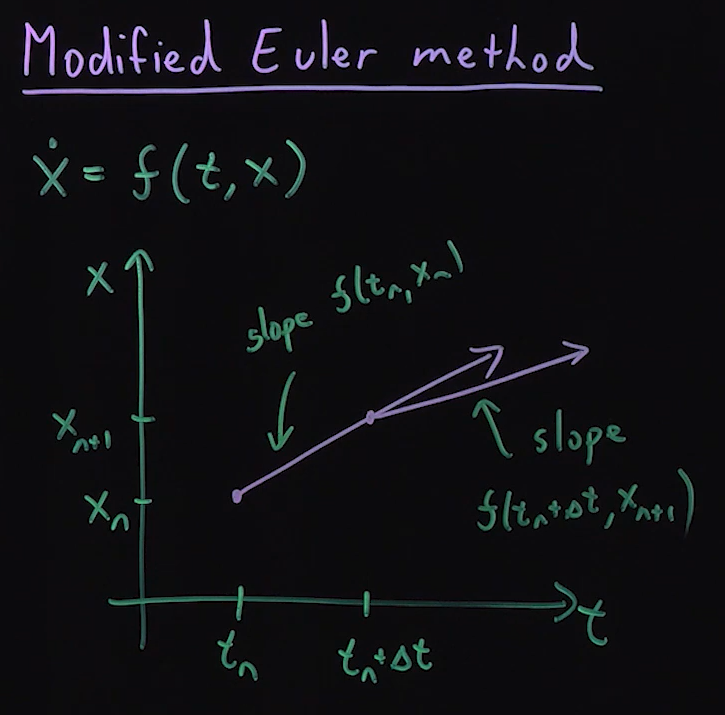 Modified Euler method
ẋ = f(t, x)
x
slope f(tₙ, xₙ)
xₙ₊₁
slope
f(tₙ+Δt, xₙ₊₁)
xₙ
t
tₙ
tₙ+Δt